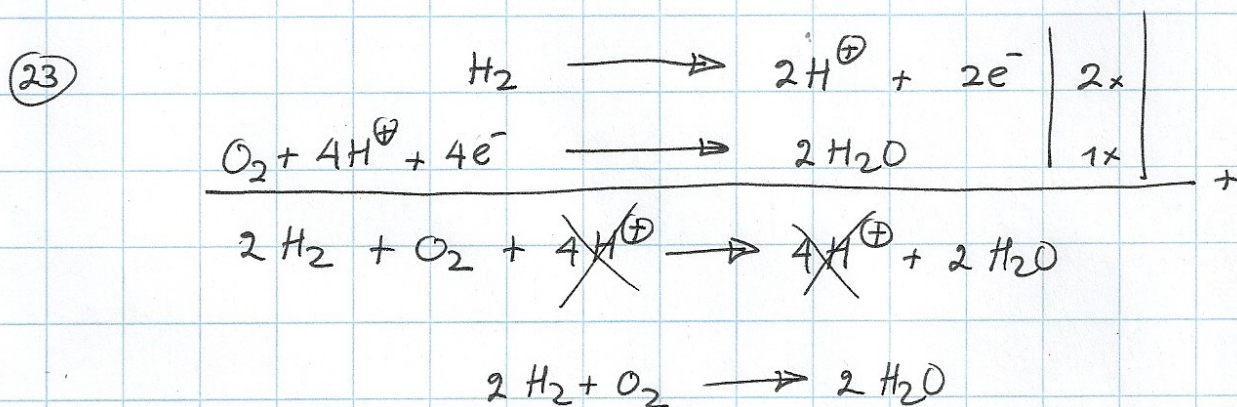 23 H₂ → 2H⊕ + 2e⁻ | 2x |
O₂ + 4H⊕ + 4e⁻ → 2 H₂O | 1x |
+
2 H₂ + O₂ + 4H⊕ → 4H⊕ + 2 H₂O
2 H₂ + O₂ → 2 H₂O